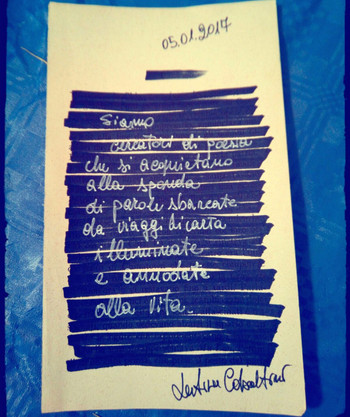 05.01.2017
Siamo
cercatori di poesia
che si acquietano
alla sponda
di parole sbarcate
da viaggi di carta
illuminate
e annodate
alla vita.